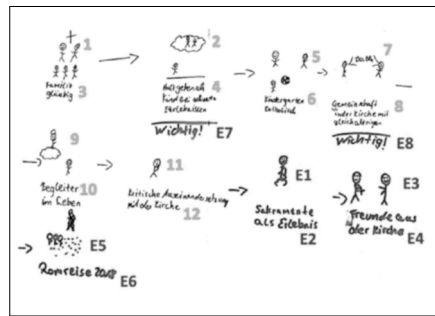 1
2
3
Familie
gläubig
4
Wichtig!
E7
5
6
Kindergarten
katholisch
7
8
Gemeinschaft
in der Kirche mit
gleichaltrigen
Wichtig!
E8
9
10
Begleiter
im Leben
11
kritische Auseinandersetzung
mit der Kirche
12
E1
Sakramente
als Erlebnis
E2
E3
Freunde aus
der Kirche
E4
E5
Romreise
E6